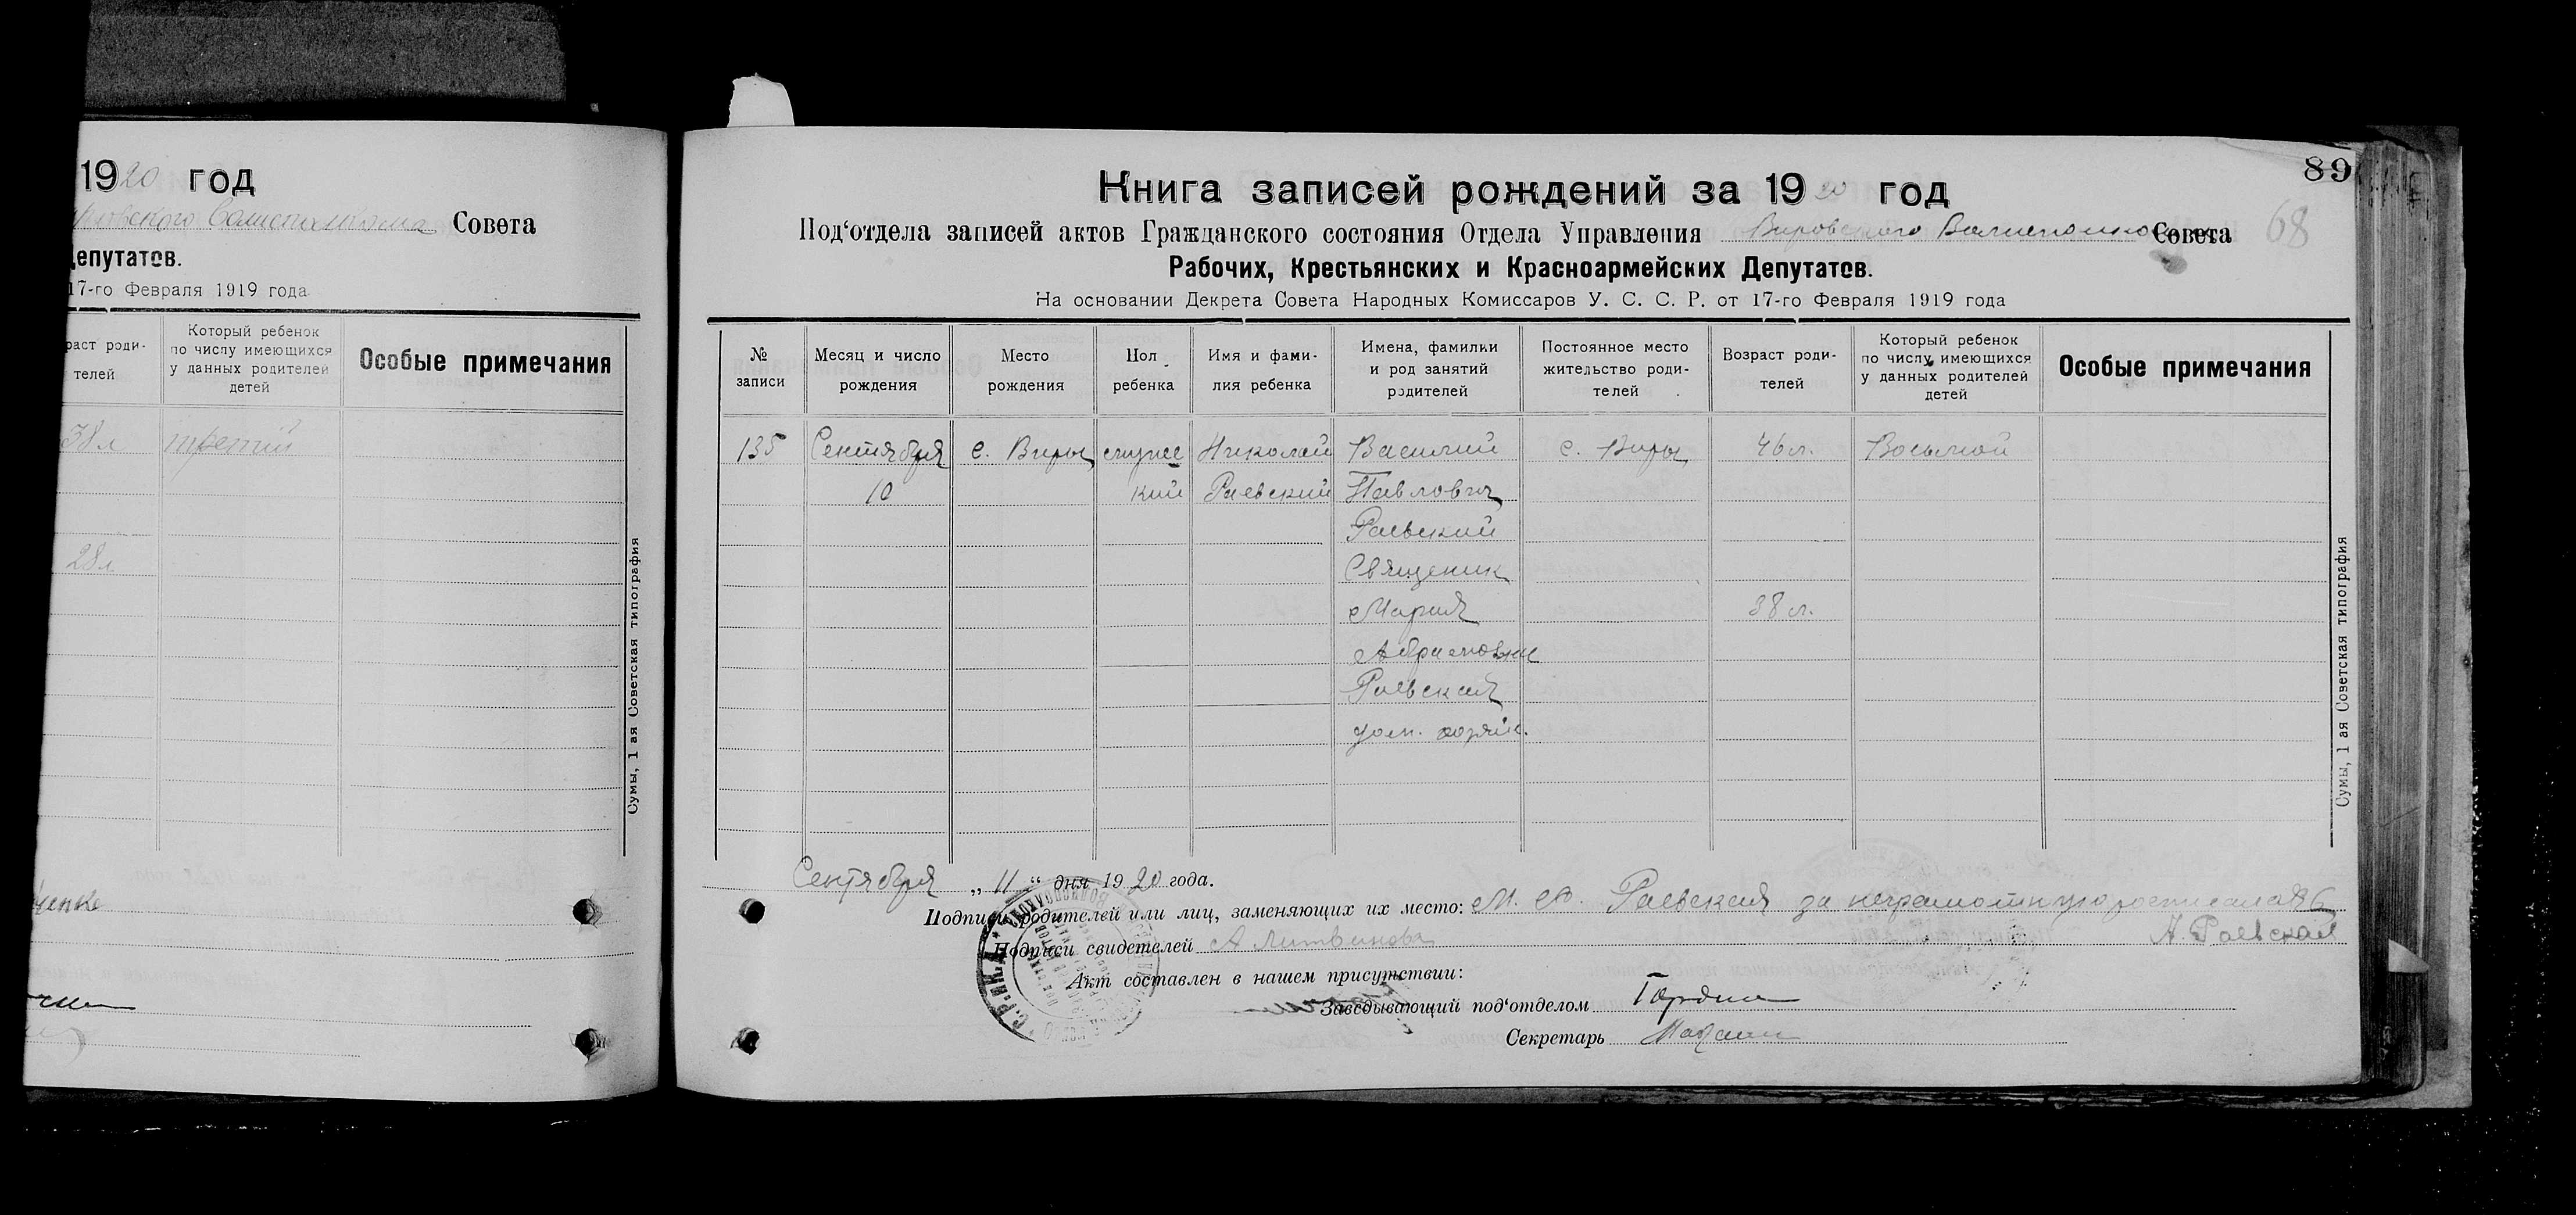 1920 год
Совета
епутатов.
17-го Февраля 1919 года
раст роди-
телей
Который ребенок
по числу имеющихся
у данных родителей
детей
Особые примечания
38л третий
28л
Сумы, 1 ая Советская типография
ченко
89
68
Книга записей рождений за 1920 год
Под‘отдела записей актов Гражданского состояния Отдела Управления Вировского Волисполкома Совета
Рабочих, Крестьянских и Красноармейских Депутатов.
На основании Декрета Совета Народных Комиссаров У. С. С. Р. от 17-го Февраля 1919 года
№
записи
Месяц и число
рождения
Место
рождения
Пол
ребенка
Имя и фами-
лия ребенка
Имена, фамилии
и род занятий
родителей
Постоянное место
жительство роди-
телей
Возраст роди-
телей
Который ребенок
по числу имеющихся
у данных родителей
детей
Особые примечания
135 Сентября с. Виры мужс Николай Василий с. Виры 46 л. Восьмой
10 кий Раевский Павлович
Раевский
Священик
Мария 38 л.
Абрамовна
Раевская
дом. хозяйс.
Сумы, 1 ая Советская типография
Сентября „ 11 “ дня 1920 года.
Подписи родителей или лиц, заменяющих их место: М. А. Раевская за неграмотную росписалась
А. Раевская
Подписи свидетелей А Литвинова
Акт составлен в нашем присутствии:
Заведывающий под‘отделом
Секретарь